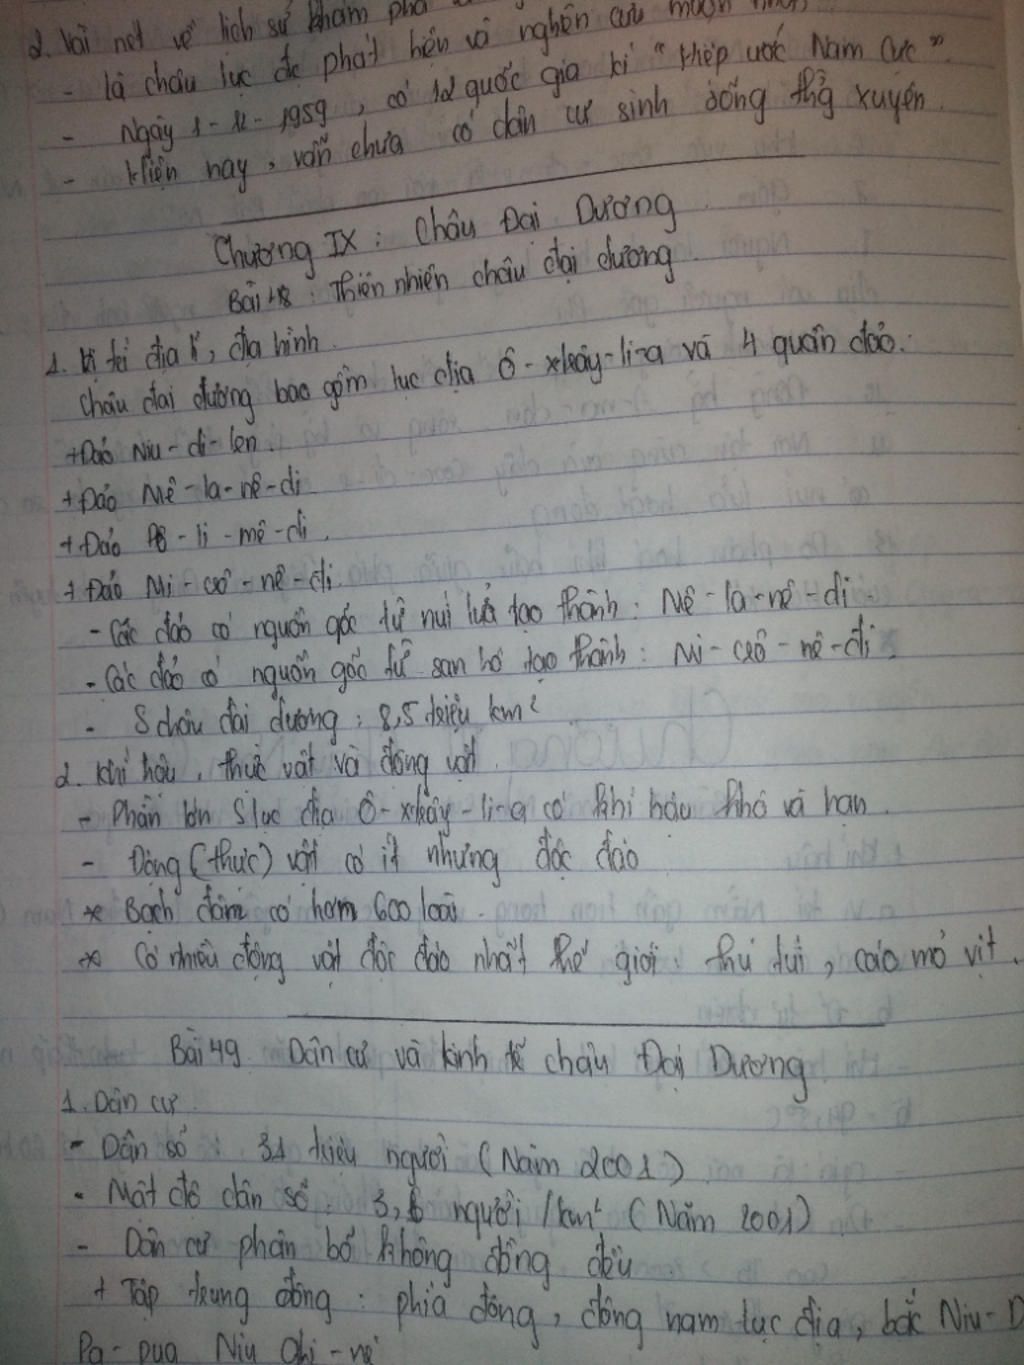 2. Vài nét về lịch sử khám phá
- là châu lục đc phát hiện và nghiên cứu muộn nhất
- Ngày 1-12-1959, có 12 quốc gia kí "Hiệp ước Nam Cực".
- Hiện nay, vẫn chưa có dân cư sinh sống thg xuyên.
Chương IX: Châu Đại Dương
Bài 48: Thiên nhiên châu đại dương.
1. Vị trí địa lí, địa hình.
Châu đại dương bao gồm lục địa Ô-xtrây-li-a và 4 quần đảo.
+ Đảo Niu-di-len.
+ Đảo Mê-la-nê-di
+ Đảo Pô-li-mê-di.
+ Đảo Mi-crô-nê-di.
- Các đảo có nguồn gốc từ núi lửa tạo thành: Mê-la-nê-di.
- Các đảo có nguồn gốc từ san hô tạo thành: Mi-crô-nê-di.
- S châu đại dương: 8,5 triệu km²
2. Khí hậu, thực vật và động vật.
- Phần lớn S lục địa Ô-xtrây-li-a có khí hậu khô và hạn.
- Động (thực) vật có ít nhưng độc đáo
* Bạch đàn có hơn 600 loài.
* Có nhiều động vật độc đáo nhất thế giới: thú túi, cáo mỏ vịt.
Bài 49 Dân cư và kinh tế châu Đại Dương
1. Dân cư
- Dân số: 31 triệu người (Năm 2001)
- Mật độ dân số: 3,6 người/km² (Năm 2001)
- Dân cư phân bố không đồng đều
+ Tập trung đông: phía đông, đông nam lục địa, bắc Niu-D
Pa-pua Niu Ghi-nê